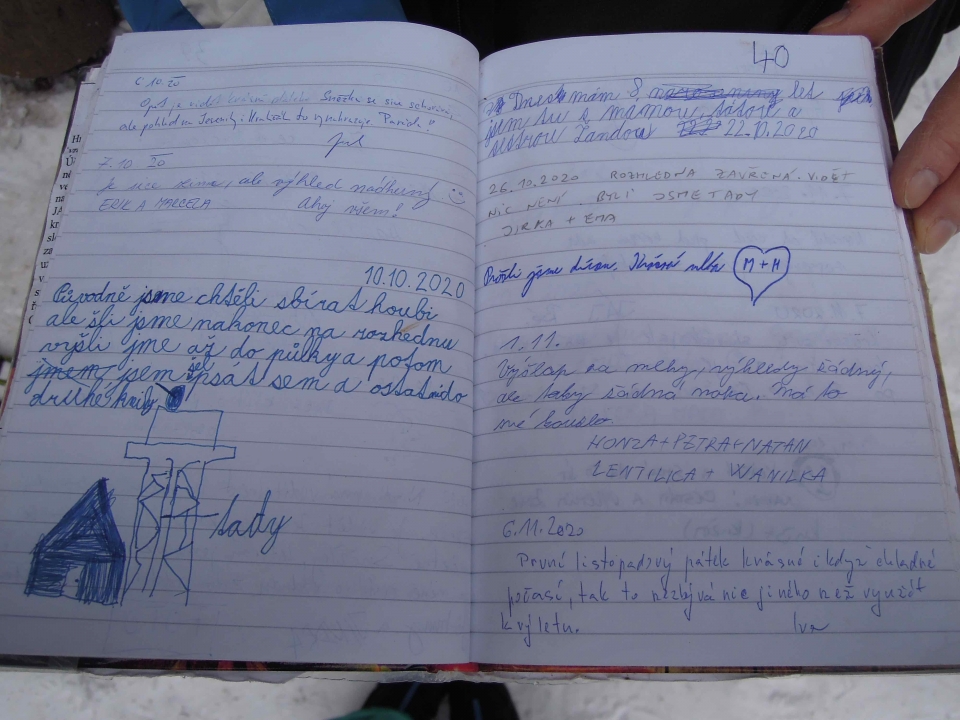 6.10.20
Opět je vidět krásně daleko. Sněžka se sice schovává,
ale pohled na Jeseníky i Králičák to vynahrazuje. Paráda!!
7.10.20
Je sice zima, ale výhled nádherný
ERIK A MARCELA Ahoj všem!
10.10.2020
Původně jsme chtěli sbírat houbi
ale šli jsme nakonec na rozhednu
vyšli jme až do půlky a potom
jsem šel psát sem a ostatní do
druhé
tady
40
Dnes mám 8 let
jsem tu s mamkou, tátou a
sestrou 22.10.2020
26.10.2020 ROZHLEDNA ZAVŘENÁ. VIDĚT
NIC NENÍ. BYLI JSME TADY
JIRKA + EMA
Prošli jsme. Krásná mlha M + H
1.11.
Výšlap na mlhy, výhledy žádný,
ale taky žádná nuda. Má to
mé kouzlo.
HONZA+PETRA+NATAN
LENTILICA + WANILKA
6.11.2020
První listopadový pátek krásné i když chladné
počasí, tak to nezbývá nic jiného než využít
k výletu. Iva